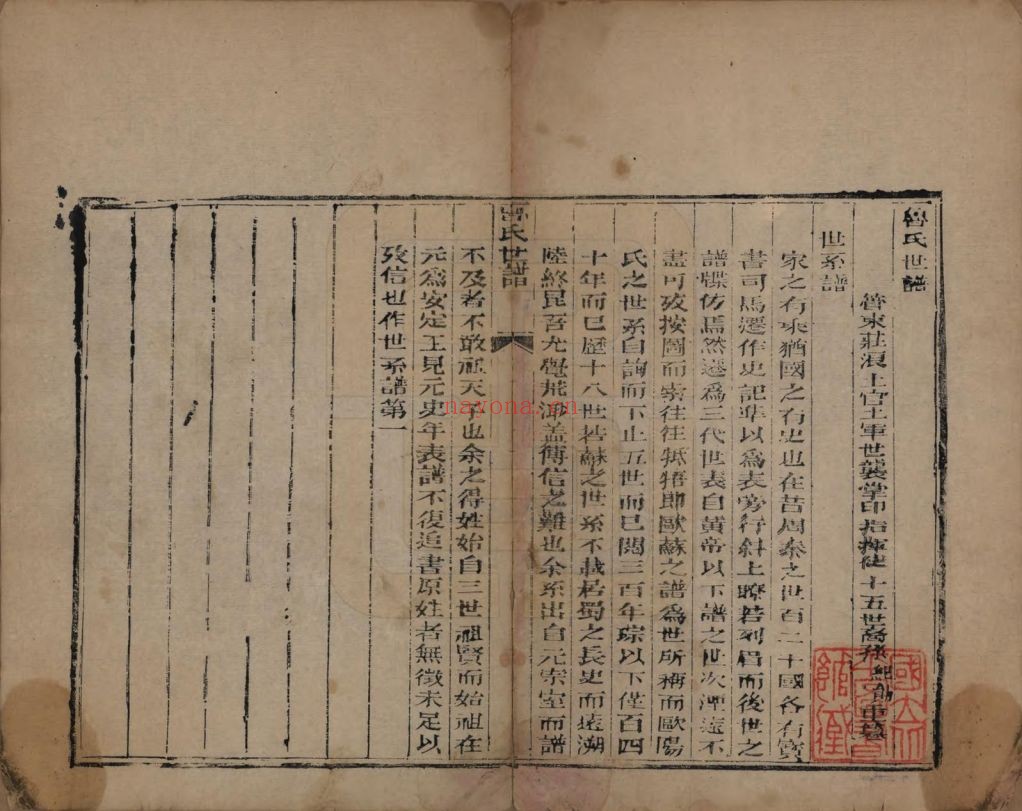 魯氏世譜
管東莊浪土官土軍世襲掌印指揮使十五世裔孫紀勛重纂
世系譜
家之有乘猶國之有史也在昔周秦之世百二十國各有寶
書司馬遷作史記準以為表旁行斜上瞭若列眉而後世之
譜牒仿焉然遷為三代世表自黃帝以下譜之世次湮遠不
盡可攷按圖而索往往牴牾即歐蘇之譜為世所稱而歐陽
氏之世系自詢而下止五世而已閱三百年琮以下僅百四
十年而已歷十八世若蘇之世系不載居蜀之長史而遠溯
陸終昆吾尤覺荒渺蓋傳信之難也余系出自元宗室而譜
魯氏世譜
不及者不敢祖天子也余之得姓始自三世祖賢而始祖在
元為安定王見元史年表譜不復追書原姓者無徵未足以
攷信也作世系譜第一
nayona.cn
國立
館藏